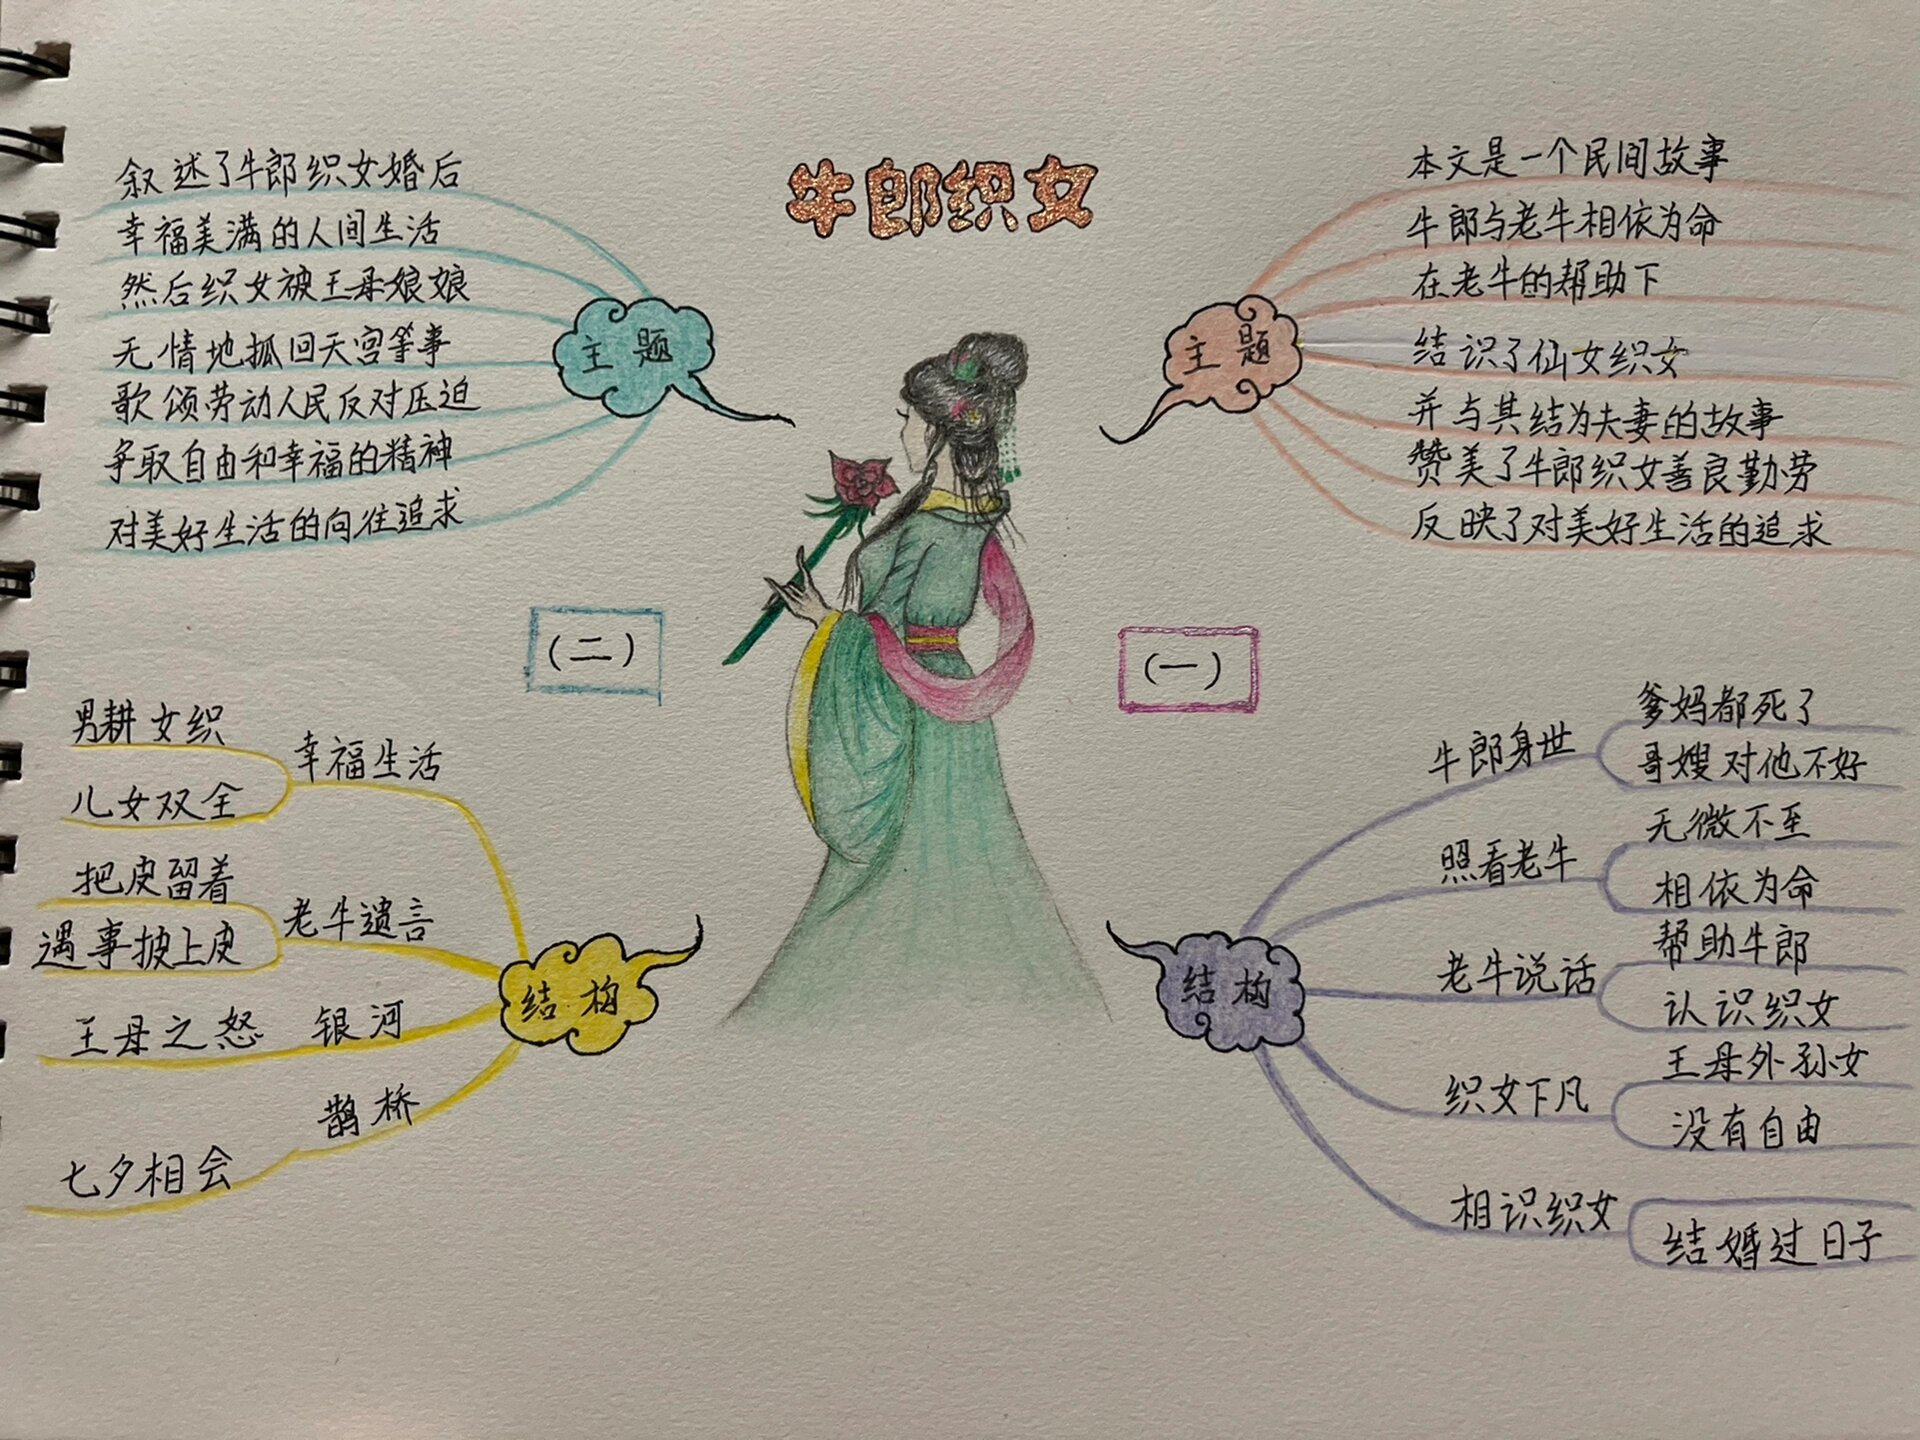 牛郎织女
叙述了牛郎织女婚后
幸福美满的人间生活
然后织女被王母娘娘
无情地抓回天宫等事
歌颂劳动人民反对压迫
争取自由和幸福的精神
对美好生活的向往追求
主题
(二)
男耕女织
儿女双全
幸福生活
把皮留着
遇事披上皮
老牛遗言
王母之怒 银河
鹊桥
七夕相会
结构
本文是一个民间故事
牛郎与老牛相依为命
在老牛的帮助下
结识了仙女织女
并与其结为夫妻的故事
赞美了牛郎织女善良勤劳
反映了对美好生活的追求
主题
(一)
结构
牛郎身世
爹妈都死了
哥嫂对他不好
照看老牛
无微不至
相依为命
老牛说话
帮助牛郎
认识织女
织女下凡
王母外孙女
没有自由
相识织女
结婚过日子